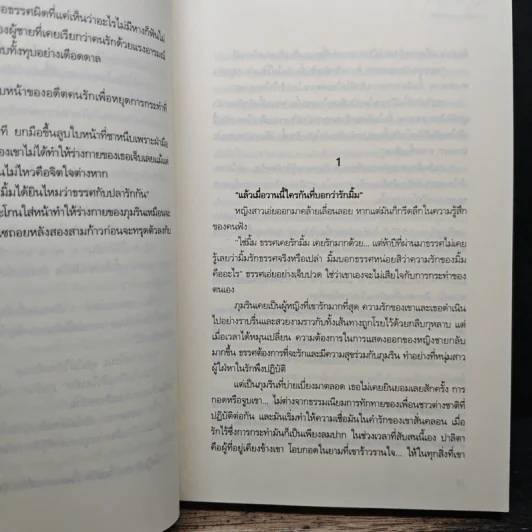 อธรรศผิดที่แค่เห็นว่าอะไรไม่มีหางก็ฟันไม่
องผู้ชายที่เคยเรียกว่าคนรักด้วยแรงอารมณ์
บทั้งทุบอย่างเดือดดาล
บหน้าของอดีตคนรักเพื่อหยุดการกระทำที่
ที ยกมือขึ้นลูบใบหน้าที่ชาหนึบเพราะฝ่ามือ
องเขาไม่ได้ทำให้ร่างกายของเธอเจ็บเลยแม้แต่
นไม่ไหวคือจิตใจต่างหาก
มิ้มได้ยินไหมว่าธรรศกับปลารักกัน"
ะโกนใส่หน้าทำให้ร่างกายของภูมรินเหมือนจะ
เซถอยหลังสองสามก้าวก่อนจะทรุดตัวลงกับ
1
"แล้วเมื่อวานนี้ใครกันที่บอกว่ารักมิ้ม"
หญิงสาวเอ่ยออกมาคล้ายเลื่อนลอย หากแต่มันก็กรีดลึกในความรู้สึก
ของคนฟัง
"ใช่มิ้ม ธรรศเคยรักมิ้ม เคยรักมากด้วย... แต่ห้าปีที่ผ่านมาธรรศไม่เคย
รู้เลยว่ามิ้มรักธรรศจริงหรือเปล่า มิ้มบอกธรรศหน่อยสิว่าความรักของมิ้ม
คืออะไร" ธรรศเอ่ยอย่างเจ็บปวด ใช่ว่าเขาเองจะไม่เสียใจกับการกระทำของ
ตนเอง
ภูมรินเคยเป็นผู้หญิงที่เขารักมากที่สุด ความรักของเขาและเธอดำเนิน
ไปอย่างราบรื่นและสวยงามราวกับทั้งเส้นทางถูกโรยไว้ด้วยกลีบกุหลาบ แต่
เมื่อเวลาได้หมุนเปลี่ยน ความต้องการในการแสดงออกของหญิงชายกลับ
มากขึ้น ธรรศต้องการที่จะรักและมีความสุขร่วมกับภูมริน ทำอย่างที่หนุ่มสาว
ผู้ใฝ่หาในรักพึงปฏิบัติ
แต่เป็นภูมรินที่บ่ายเบี่ยงมาตลอด เธอไม่เคยยินยอมเลยสักครั้ง การ
กอดหรือจูบเขา... ไม่ต่างจากธรรมเนียมการทักทายของเพื่อนชาวต่างชาติที่
ปฏิบัติต่อกัน และมันเริ่มทำให้ความเชื่อมันในคำรักของเขาสั่นคลอน เมื่อ
รักไร้ซึ่งการกระทำมันก็เป็นเพียงลมปาก ในช่วงเวลาที่สับสนนี้เอง ปาลิตา
คือผู้ที่อยู่เคียงข้างเขา โอบกอดในยามที่เขาร้าวรานใจ... ให้ในทุกสิ่งที่เขา